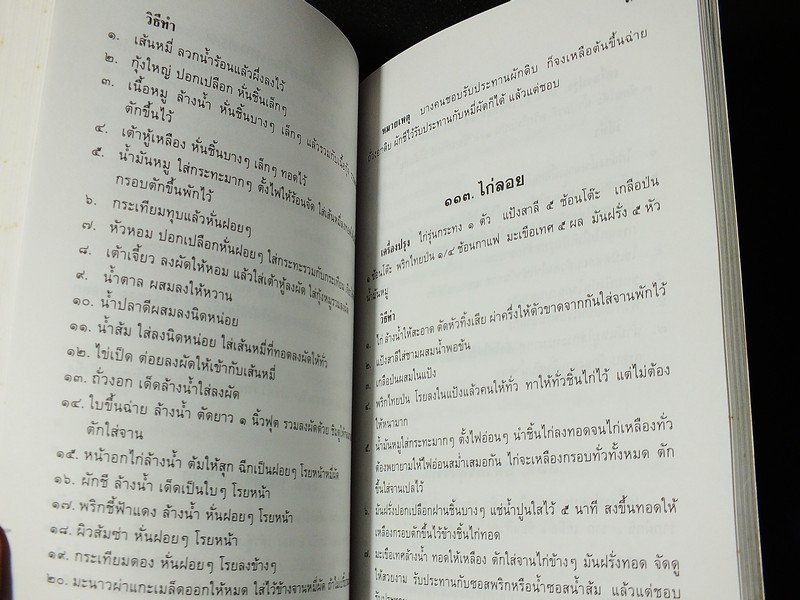 วิธีทำ
๑. เส้นหมี่ ลวกน้ำร้อนแล้วผึ่งลงไว้
๒. กุ้งใหญ่ ปอกเปลือก หั่นชิ้นเล็กๆ
๓. เนื้อหมู ล้างน้ำ หั่นชิ้นบางๆ เล็กๆ แล้วรวมกับเนื้อกุ้ง
ตักขึ้นไว้
๔. เต้าหู้เหลือง หั่นชิ้นบางๆ เล็กๆ ทอดไว้
๕. น้ำมันหมู ใส่กระทะมากๆ ตั้งไฟให้ร้อนจัด ใส่เส้นหมี่ลงทอด
กรอบตักขึ้นพักไว้
๖. กระเทียมทุบแล้วหั่นฝอยๆ
๗. หัวหอม ปอกเปลือกหั่นฝอยๆ ใส่กระทะรวมกับกระเทียม
๘. เต้าเจี้ยว ลงผัดให้หอม แล้วใส่เต้าหู้ลงผัด ใส่กุ้งหมูรวมลงผัด
๙. น้ำตาล ผสมลงให้หวาน
๑๐. น้ำปลาดีผสมลงนิดหน่อย
๑๑. น้ำส้ม ใส่ลงนิดหน่อย ใส่เส้นหมี่ที่ทอดลงผัดให้ทั่ว
๑๒. ไข่เป็ด ต่อยลงผัดให้เข้ากับเส้นหมี่
๑๓. ถั่วงอก เด็ดล้างน้ำใส่ลงผัด
๑๔. ใบขึ้นฉ่าย ล้างน้ำ ตัดยาว ๑ นิ้วฟุต รวมลงผัดด้วย
ตักใส่จาน
๑๕. หน้าอกไก่ล้างน้ำ ต้มให้สุก ฉีกเป็นฝอยๆ โรยหน้าหมี่ผัด
๑๖. ผักชี ล้างน้ำ เด็ดเป็นใบๆ โรยหน้า
๑๗. พริกชี้ฟ้าแดง ล้างน้ำ หั่นฝอยๆ โรยหน้า
๑๘. ผิวส้มซ่า หั่นฝอยๆ โรยหน้า
๑๙. กระเทียมดอง หั่นฝอยๆ โรยลงข้างๆ
๒๐. มะนาวผ่าแกะเมล็ดออกให้หมด ใส่ไว้ข้างจานหมี่ผัด
หมายเหตุ บางคนชอบรับประทานผักดิบ ก็จงเหลือต้นขึ้นฉ่าย
ผักชีไว้รับประทานกับหมี่ผัดก็ได้ แล้วแต่ชอบ
๑๑๓. ไก่ลอย
เครื่องปรุง ไก่รุ่นกระทง ๑ ตัว แป้งสาลี ๕ ช้อนโต๊ะ เกลือป่น
๑ ช้อนโต๊ะ พริกไทยป่น ๑/๔ ช้อนกาแฟ มะเขือเทศ ๕ ผล มันฝรั่ง ๕ หัว
น้ำมันหมู
วิธีทำ
๑. ไก่ ล้างน้ำให้สะอาด ตัดหัวทิ้งเสีย ผ่าครึ่งให้ตัวขาดจากกันใส่จานพักไว้
๒. แป้งสาลีใส่ชามผสมน้ำพอข้น
๓. เกลือป่นผสมในแป้ง
๔. พริกไทยป่น โรยลงในแป้งแล้วคนให้ทั่ว ทาให้ทั่วชิ้นไก่ไว้ แต่ไม่ต้อง
ให้หนามาก
๕. น้ำมันหมูใส่กระทะมากๆ ตั้งไฟอ่อนๆ นำชิ้นไก่ลงทอดจนไก่เหลืองทั่ว
ต้องพยายามให้ไฟอ่อนสม่ำเสมอกัน ไก่จะเหลืองกรอบทั่วทั้งหมด ตัก
ขึ้นใส่จานเปลไว้
๖. มันฝรั่งปอกเปลือกฝานชิ้นบางๆ แช่น้ำปูนใสไว้ ๕ นาที สงขึ้นทอดให้
เหลืองกรอบตักขึ้นไว้ข้างชิ้นไก่ทอด
๗. มะเขือเทศล้างน้ำ ทอดให้เหลือง ตักใส่จานไก่ข้างๆ มันฝรั่งทอด จัดดู
ให้สวยงาม รับประทานกับซอสพริกหรือน้ำซอสน้ำส้ม แล้วแต่ชอบ